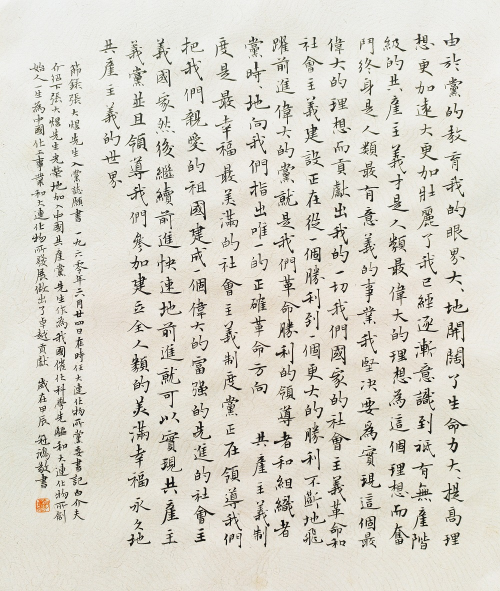 由於黨的教育我的眼界大大地開闊了生命力大大提高理
想更加遠大更加壯麗了我已經逐漸意識到祇有無產階
級的共產主義才是人類最偉大的理想為這個理想而奮
鬥終身是人類最有意義的事業我堅決要為實現這個最
偉大的理想而貢獻出我的一切我們國家的社會主義革命和
社會主義建設正在從一個勝利到一個更大的勝利不斷地飛
躍前進偉大的黨就是我們革命勝利的領導者和組織者
黨時時地向我們指出唯一的正確革命方向 共產主義制
度是最幸福最美滿的社會主義制度黨正在領導我們
把我們親愛的祖國建成一個偉大的富强的先進的社會主
義國家然後繼續前進快速地前進就可以實現共產主
義黨並且領導我們參加建立全人類的美滿幸福永久地
共產主義的世界
節錄張大煜先生入黨志願書 一九六零年二月廿四日在時任大連化物所黨委書記白介夫
介紹下張大煜先生光榮地加入中國共產黨先生作為我國催化科學先驅和大連化物所創
始人一生為中國化工事業和大連化物所發展做出了卓越貢獻 歲在甲辰 鴻散書